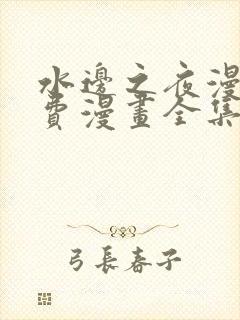 水邊之夜漫
費漫畫全集
弓長春子